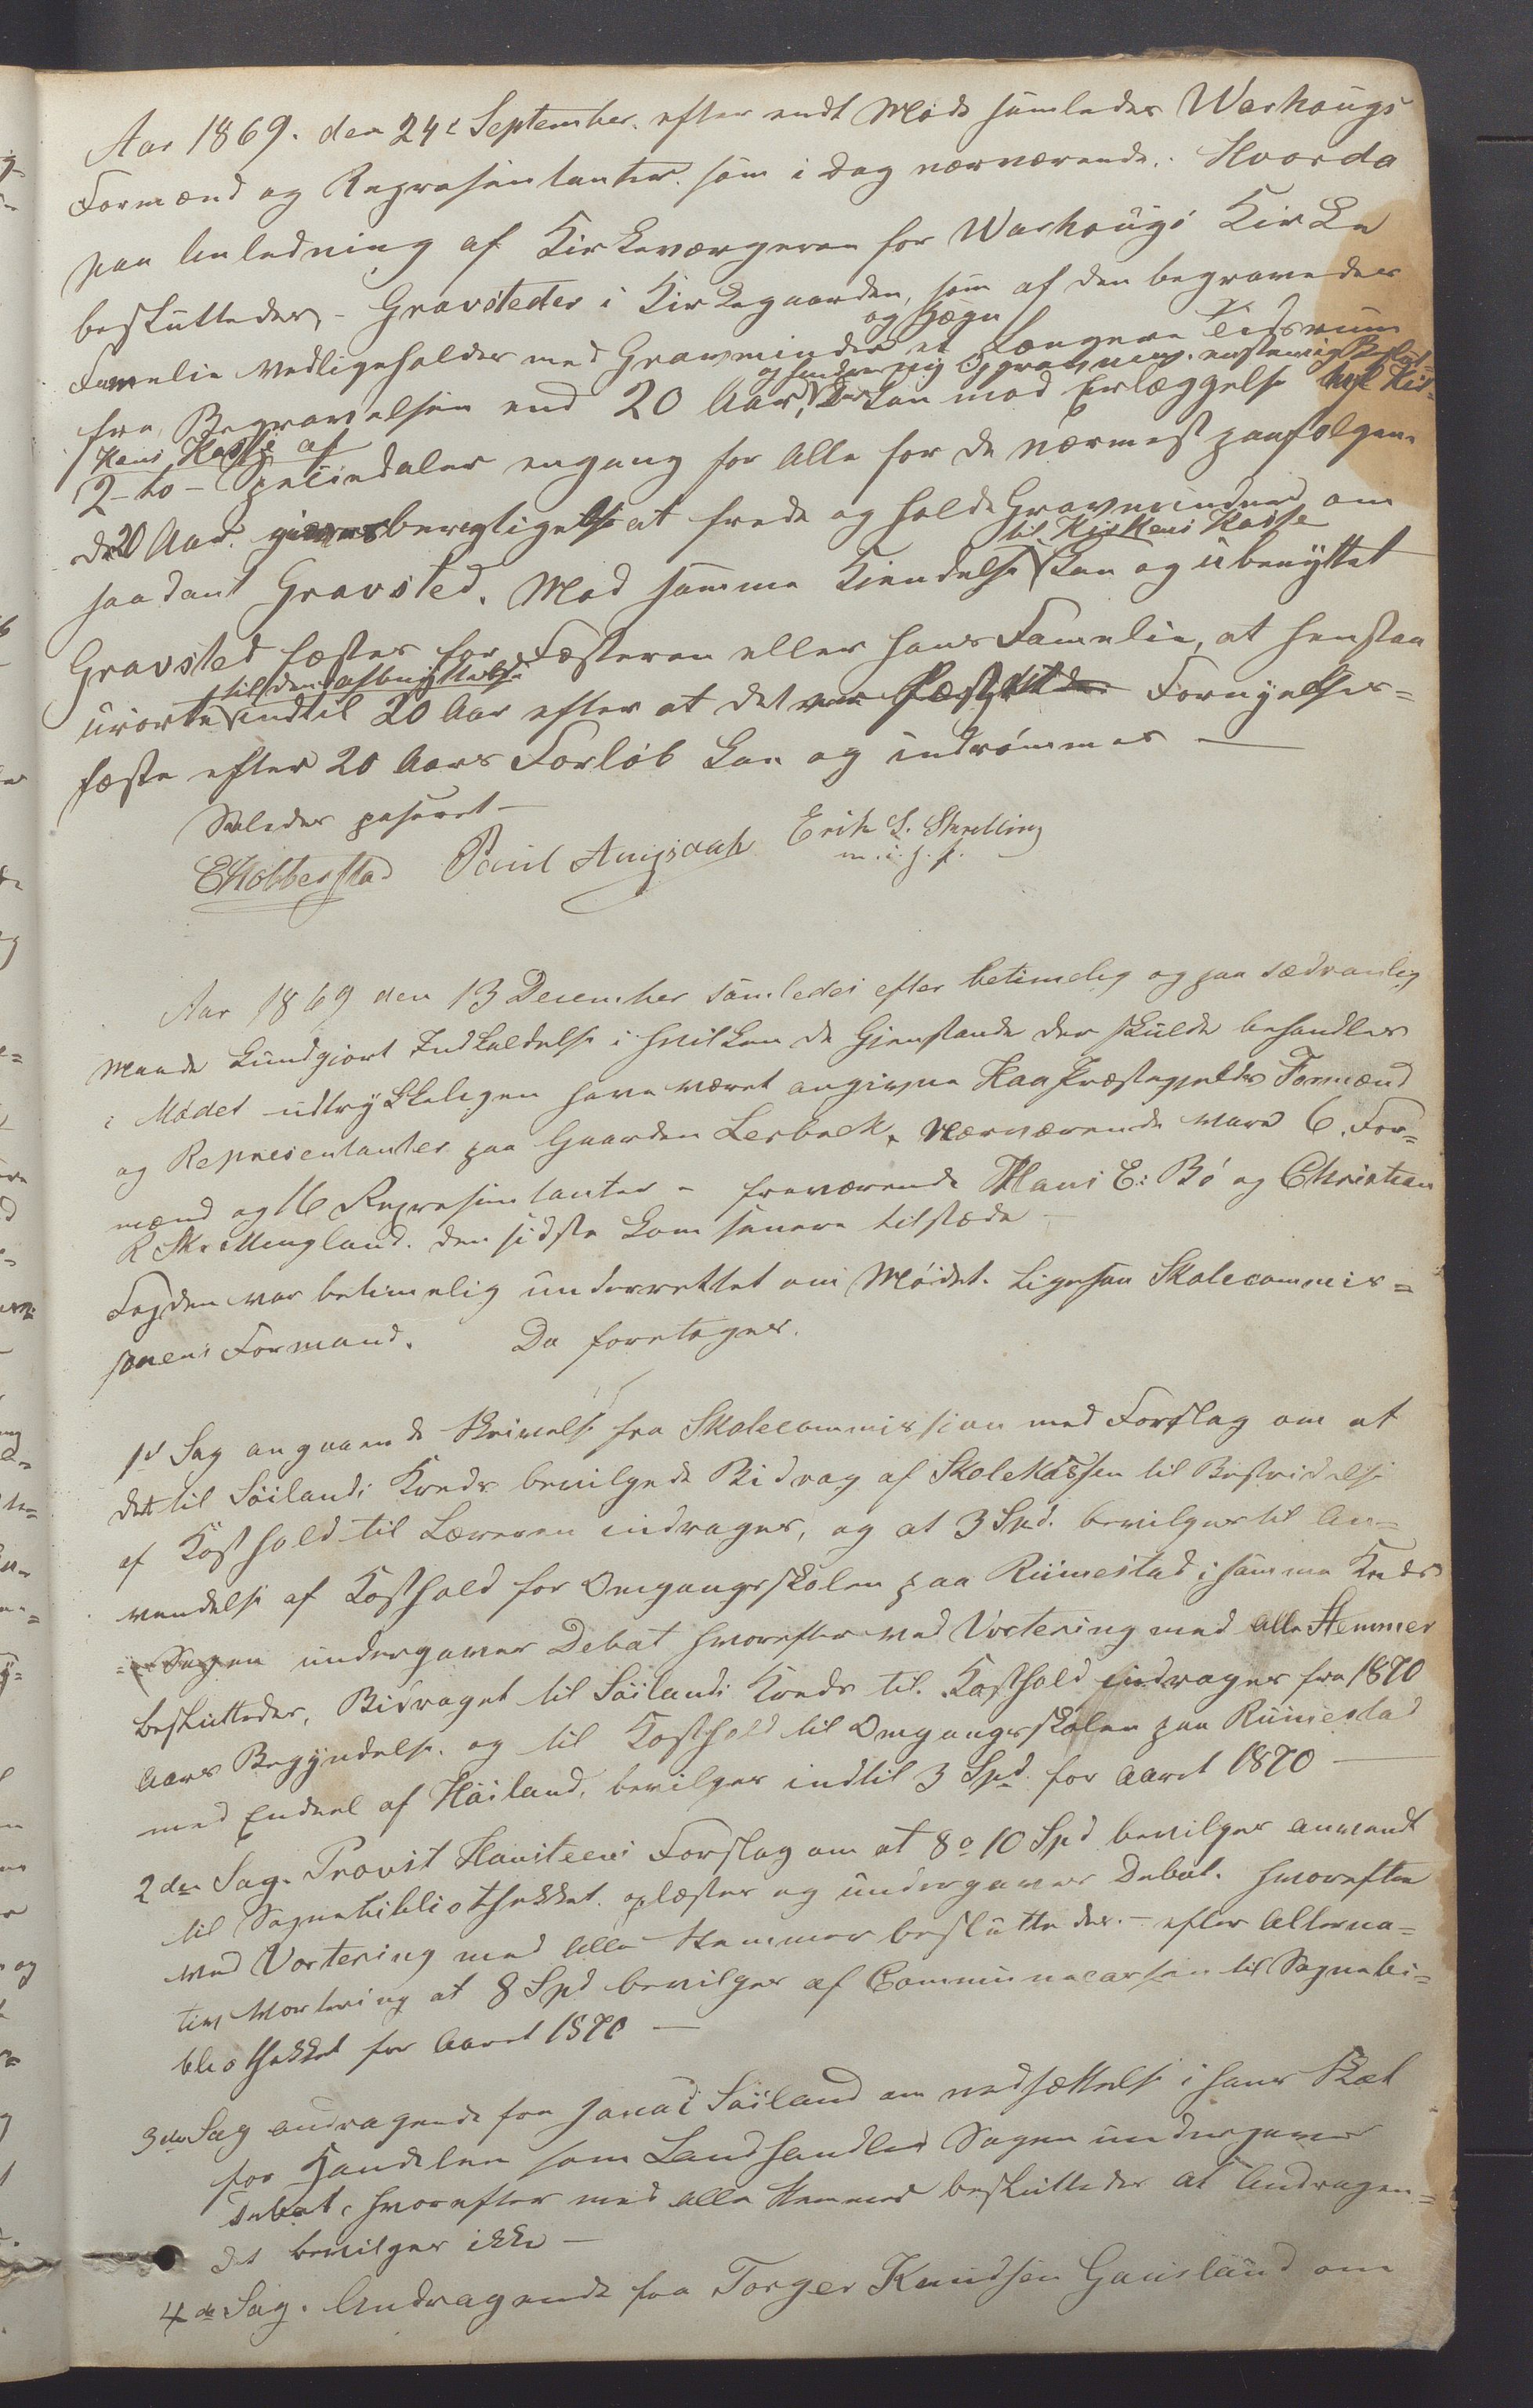 Aar 1869. den 24e September. efter endt Møde samledes Warhougs
Formænd og Repræsentanter. som i Dag nærværende. Hvorda
paa Anledning af Kirkeværgeren for Warhougs Kirke
besluttedes, - Gravsteder i Kirkegaarden, som af den begravedes
og Hægn
Famelie vedligeholdes med Gravminder et Længere Tidsrum
fra Begravelsen end 20 Aar, kan mod Erlæggelse Kir-
kens Kasse af
2 - to - Speciedaler engang for Alle for de nærmest paafølgen-
de 20 Aar. gives berettigelse at frede og holde Gravminder om
til Kirkens Kasse
saadant Gravsted. Mod samme Kiendelse kan og ubenyttet
Gravsted fæstes for Fæsteren eller hans Famelie, at henstaa
til dens afbenyttelse
urørte indtil 20 Aar efter at det Fornyelses=
fæste efter 20 Aars Forløb kan og indrømmes —
Saaledes passeret —
E Kobberstad Paul Aniksdahl Erik L. Skretting
m. i. h. p.
Aar 1869 den 13 December samledes efter betimelig og paa sædvanlig
Maade kundgjort Indkaldelse i hvilken de Gjenstande der skulde behandles
i Mødet udtrykkeligen have været angivne Haa Præstegjelds Formænd
og Representanter paa Gaarden Lerbrek. Nærværende vare 6. For=
mænd og 16 Repræsentanter - fraværende Hans E: Bø og Christian
R Skrettingland. den sidste kom senere tilstæde —
Fogden var betimelig underrettet om Mødet. Ligesaa Skolecommis=
sionens Formand. Da foretoges.
1ste Sag angaaende Skrivelse fra Skolecommission med Forslag om at
det til Søilands Kreds bevilgede Bidrag af Skolekassen til Bestridelse
af Kosthold til Læreren inddrages, og at 3 Spd. bevilges til An=
vendelse af Kosthold for Omgangsskolen paa Rimestad i samme Kreds
Sagen undergaves Debat hvorefter ved Vortering med alle Stemmer
besluttedes, Bidraget til Søilands Kreds til Kosthold inddrages fra 1870
Aars Begyndelse. og til Kosthold til Omgangsskolen paa Rimestad
med Endeel af Høiland, bevilges indtil 3 Spd for Aaret 1870 —
2den Sag. Provst Hansteens Forslag om at 8 a 10 Spd bevilges anvendt
til Sognebibliothekket. oplæstes og undergaves Debat. hvorefter
ved Vortering med Alle Stemmer besluttedes. - efter Alterna=
tiv Wortering at 8 Spd bevilges af Communecassen til Sognebi=
bliothekket for Aaret 1870 —
3die Sag andragende fra Jonas Søiland om nedsættelse i hans Skat
for Handelen som Landhandler Sagen undergaves
Debat, hvorefter med alle Stemmer besluttedes at Andragen=
det bevilges ikke —
4de Sag. Andragende fra Torger Knudsen Gausland om